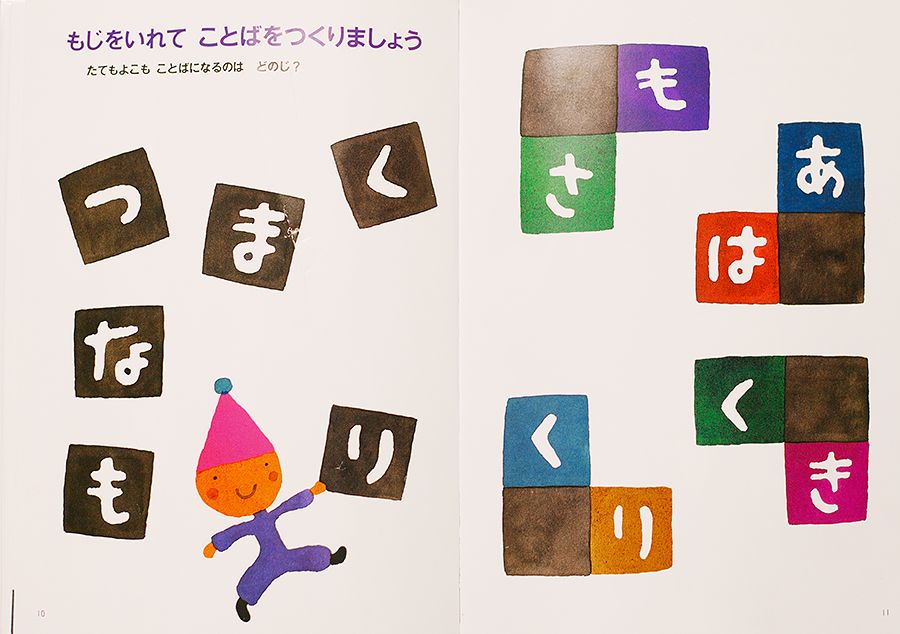 もじをいれて ことばをつくりましょう
たてもよこも ことばになるのは どのじ？
く
つ
ま
な
り
も
10
も
さ
あ
は
く
き
く
り
11